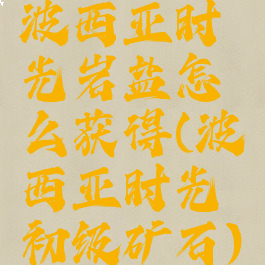 波西亚时
光岩盐怎
么获得(波
西亚时光
初级矿石)